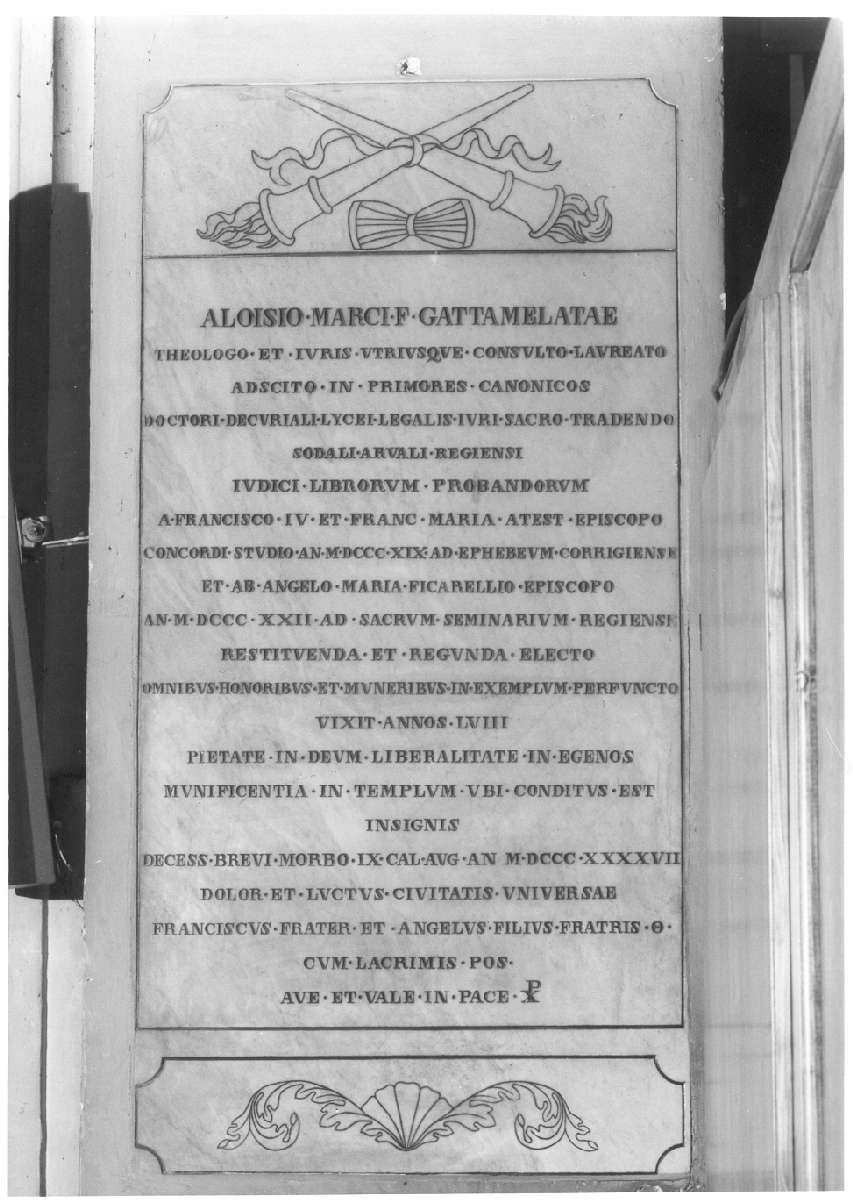 ALOISIO·MARCI·F·GATTAMELATAE
THEOLOGO·ET·IVRIS·VTRIVSQVE·CONSVLTO·LAVREATO
ADSCITO·IN·PRIMORES·CANONICOS
DOCTORI·DECVRIALI·LYCEI·LEGALIS·IVRI·SACRO·TRADENDO
SODALI·ARVALI·REGIENSI
IVDICI·LIBRORVM·PROBANDORVM
A·FRANCISCO·IV·ET·FRANC·MARIA·ATEST·EPISCOPO
CONCORDI·STVDIO·AN·M·DCCC·XIX·AD·EPHEBEVM·CORRIGIENSE
ET·AB·ANGELO·MARIA·FICARELLIO·EPISCOPO
AN·M·DCCC·XXII·AD·SACRVM·SEMINARIVM·REGIENSE
RESTITVENDA·ET·REGVNDA·ELECTO
OMNIBVS·HONORIBVS·ET·MVNERIBVS·IN·EXEMPLVM·PERFVNCTO
VIXIT·ANNOS·LVIII
PIETATE·IN·DEVM·LIBERALITATE·IN·EGENOS
MVNIFICENTIA·IN·TEMPLVM·VBI·CONDITVS·EST
INSIGNIS
DECESS·BREVI·MORBO·IX·CAL·AVG·AN M·DCCC·XXXXVII
DOLOR·ET·LVCTVS·CIVITATIS·VNIVERSAE
FRANCISCVS·FRATER·ET·ANGELVS·FILIVS·FRATRIS·Θ·
CVM·LACRIMIS·POS·
AVE·ET·VALE·IN·PACE·☧